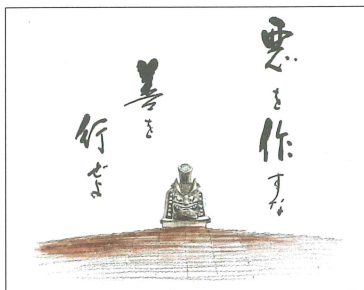 悪を作すな
善を
行ぜよ